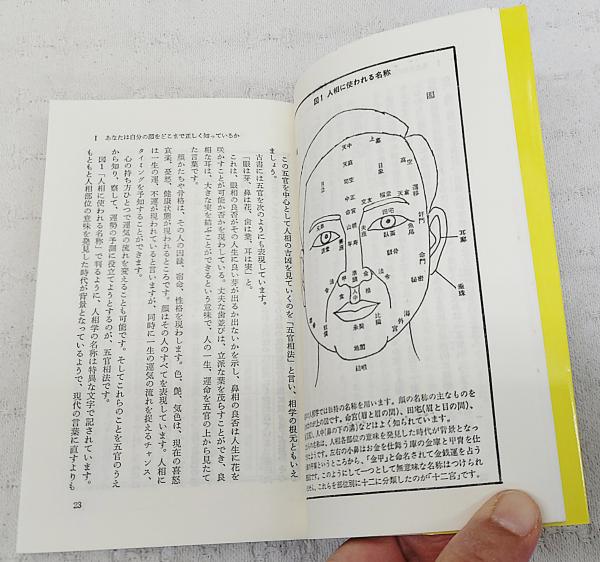 図1 人相に使われる名称
天中
上墓
天庭
日象
高空
司空
月象
中正
福堂
天倉
遷移
命宮
田宅
命門
山根
魚尾
臥蚕
年寿
顴骨
耳廓
命宮
秘密
垂珠
準頭
金甲
法令
人中
食禄
比隣
海
宮外
承漿
地閣
頌堂
人相学では独特の名称を用います。顔の名称の主なものを
上の図です。命宮(眉と眉の間)、田宅(眉と目の間)、
人中(鼻の下の溝)などはよく知られています。
の名称は、人相各部位の意味を発見した時代が背景となっ
左右の小鼻はお金を仕舞う庫の金庫と甲冑を仕
庫というところから、「金甲」と命名されて金銭運を占う
です。このようにして一つとして無意味な名称はつけられ
せん。これらを部位別に十二に分類したのが「十二宮」です。
I あなたは自分の顔をどこまで正しく知っているか
この五官を中心として人相の吉凶を見ていくのを「五官相法」と言い、相学の根元ともいえ
ましょう。
古書には五官を次のようにも表現しています。
「眼は芽、鼻は花、歯は葉、耳は実」と。
これは、眼相の良否がその人生に良い芽が出るか出ないかを示し、鼻相の良否は人生に花を
咲かすことが可能か否かを現わしている。丈夫な歯並びは、立派な葉を茂らすことができ、良
相な耳は、大きな実を結ぶことができるという意味で、人の一生、運命を五官の上から見たて
た言葉です。
顔かたちや骨格は、その人の因縁、宿命、性格を現わします。色、艶、気色は、現在の喜怒
哀楽、憂愁、健康状態が現われるところです。顔はその人のすべてを表現しています。人相に
は一生の運、不運が現われていると言いますが、同時に一生の運気の流れを捉えるチャンス、
タイミングを予知することができます。
心の持ち方ひとつで運気の流れを変えることも可能です。そしてこれらのことを五官のうえ
から知り、察して、運勢の予測に役立てようとするのが、五官相法です。
図1「人相に使われる名称」で判るように、人相学の名称は特異な文字で記されています。
もともと人相部位の意味を発見した時代が背景となっているようで、現代の言葉に直すよりも
23